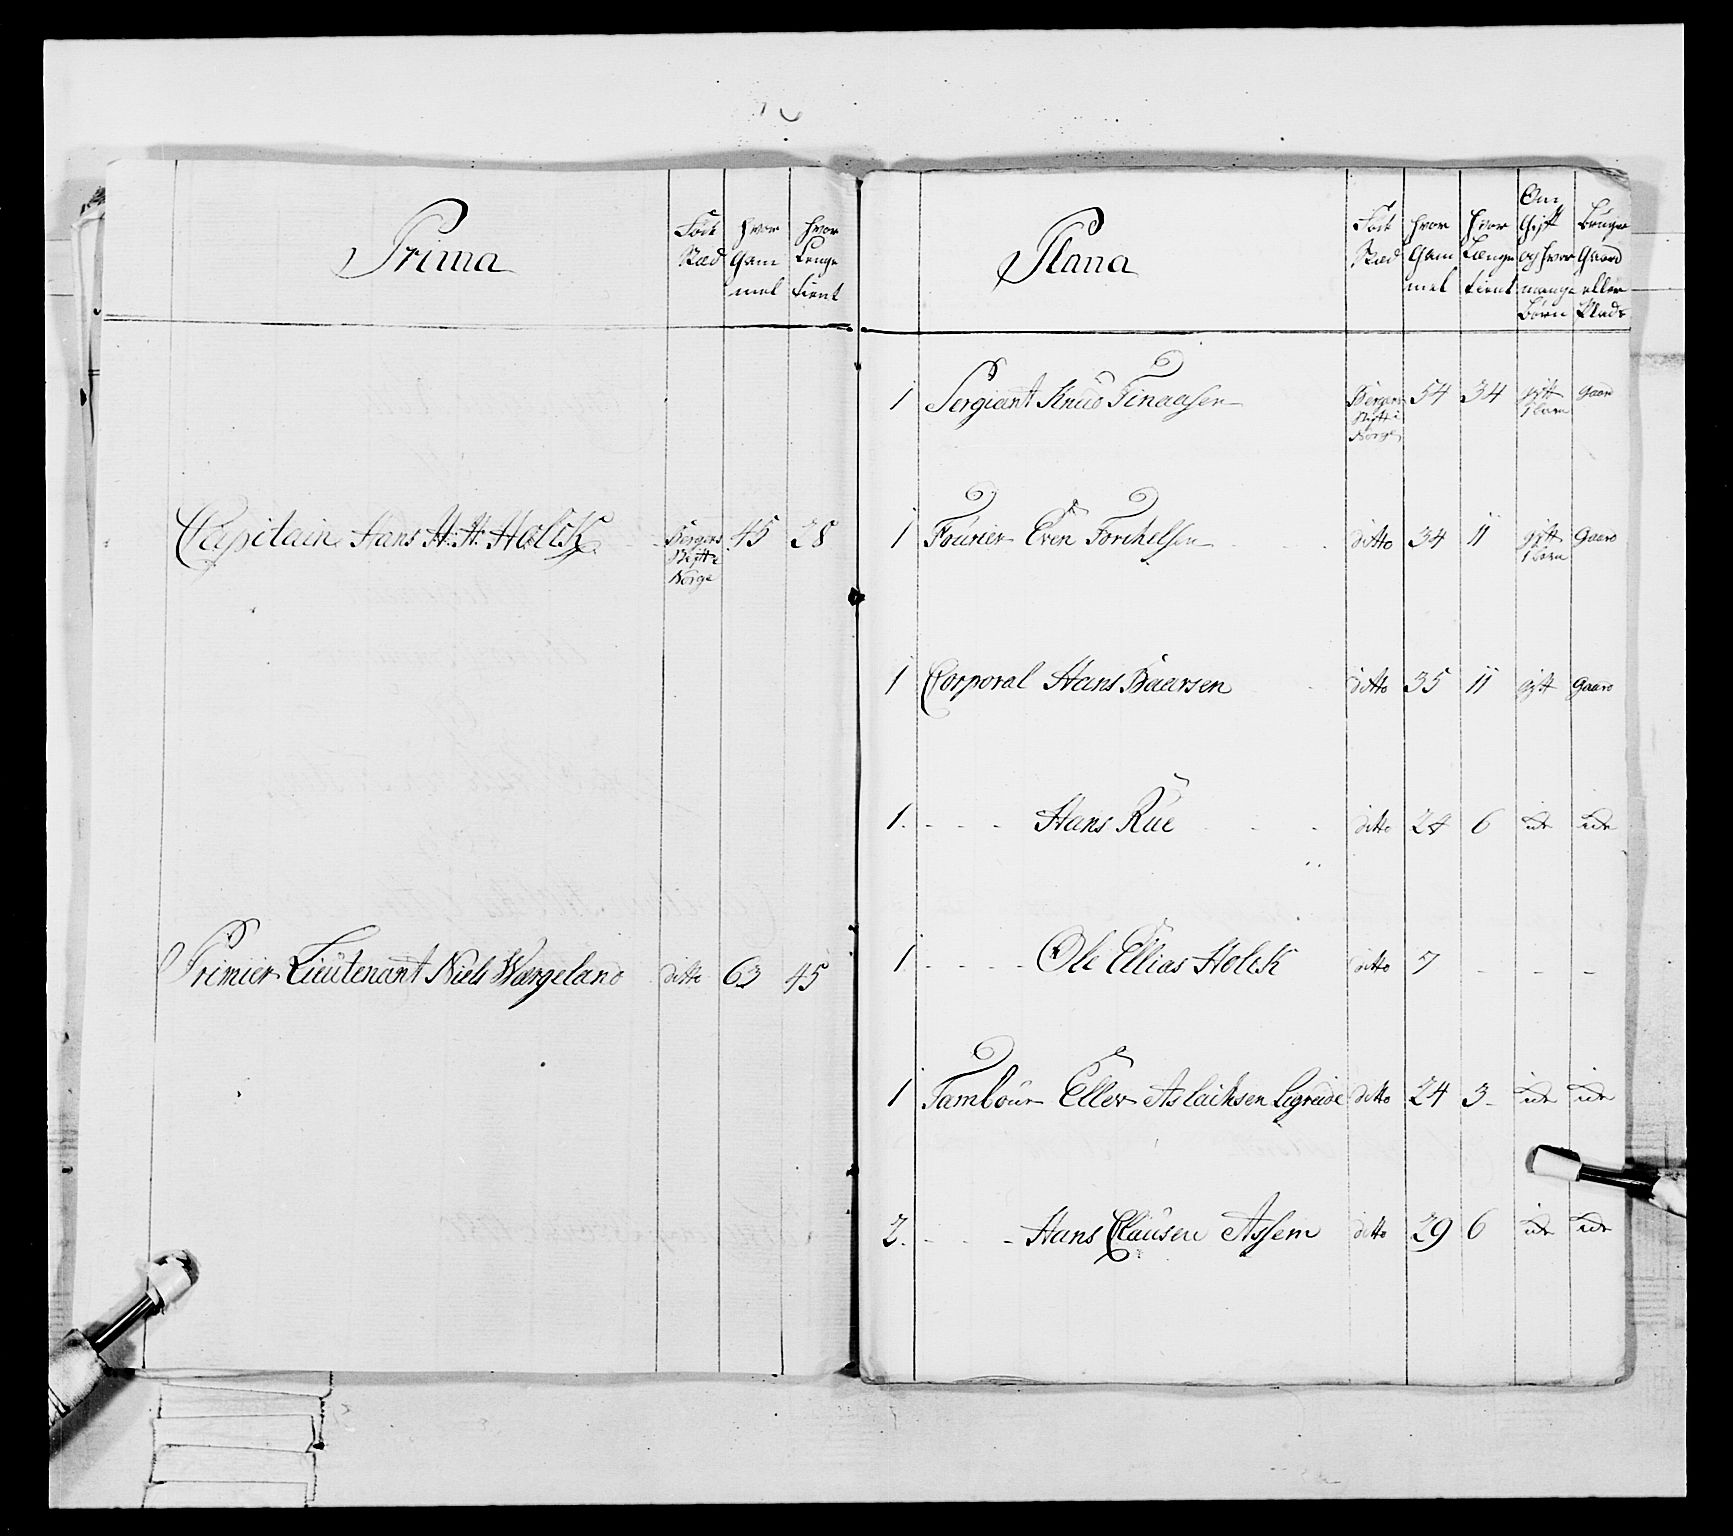 Prima
Født Stæd
hvor Gam mel
hvor Lenge tient
Capitain Hans H: H: Holck Bergens Stifte Norge 45 28
Primier Lieutenant Niels Wergeland ditto 63 45
Plana
Født Stæd
hvor Gam mel
hvor Længe tient
Om Gift og hvor mange Børn
Bruger Gaard eller Plads
1 Sergiant Knud Finaasen Bergens Stift i Norge 54 34 gift 1 barn gaard
1 Fourier Even Torchelsen ditto 34 11 gift 1 barn gaard
1 Corporal Hans Baarsen ditto 35 11 gift gaard
1. - - - Hans Rüe ditto 24 6 - -
1 - - - - Ole Ellias Holck ditto 7 - - -
1 Tambour Eller Aslachsen Legreide ditto 24 3
2. - - - Hans Clausen Assem ditto 29 6